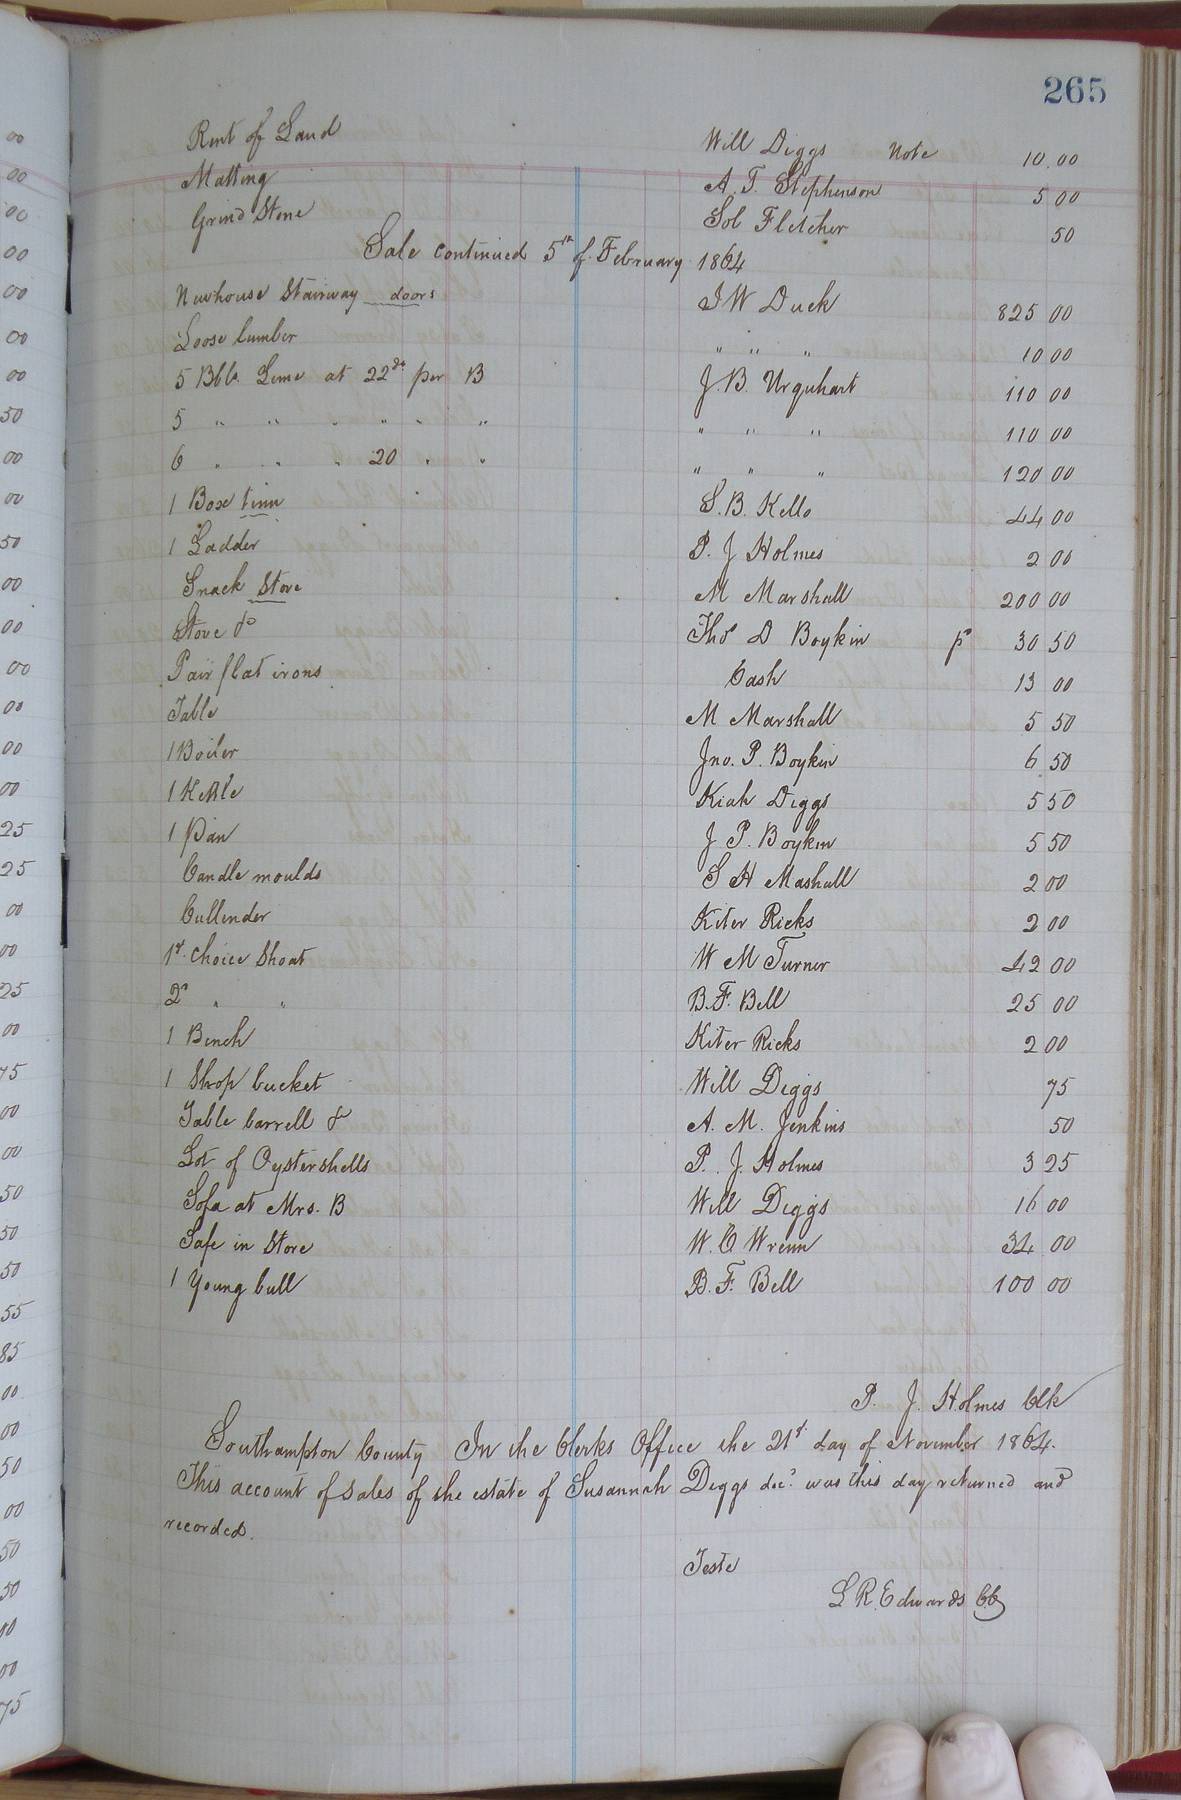 265
Rent of Land Will Diggs Note 10.00
Matting A. T. Stephenson 5 00
Grind Stone Sol Fletcher 50
Sale continued 5th of February 1864
Newhouse Stairway doors J W Duck 825 00
Loose lumber " " " 10 00
5 Bbls. Lime at 22 per B J. B. Urquhart 110 00
5 " " " " " " " " " 110 00
6 " " " 20 " " " " " 120 00
1 Box tinn S. B. Kello 44 00
1 Ladder P. J Holmes 2 00
Snack Stove M Marshall 200 00
Stove do Thos D Boykin pd 30 50
Pair flat irons Cash 13 00
Table M Marshall 5 50
1 Boiler Jno. P. Boykin 6 50
1 Kettle Kiah Diggs 5 50
1 Pan J P. Boykin 5 50
Candle moulds S H Mashall 2 00
Cullender Kiter Ricks 2 00
1st. choice Shoat W M Turner 42 00
2d " " B. F. Bell 25 00
1 Bench Kiter Ricks 2 00
1 Shop bucket Will Diggs 75
Table barrell & A. M. Jenkins 50
Lot of Oystershells P. J. Holmes 3 25
Sofa at Mrs. B Will Diggs 16 00
Safe in Store W. C Wrenn 34 00
1 Young bull B. F. Bell 100 00
P. J. Holmes Clk
Southampton County In the Clerks Office the 21st day of November 1864.
This account of sales of the estate of Susannah Diggs decd. was this day returned and
recorded.
Teste
L R. Edwards CC